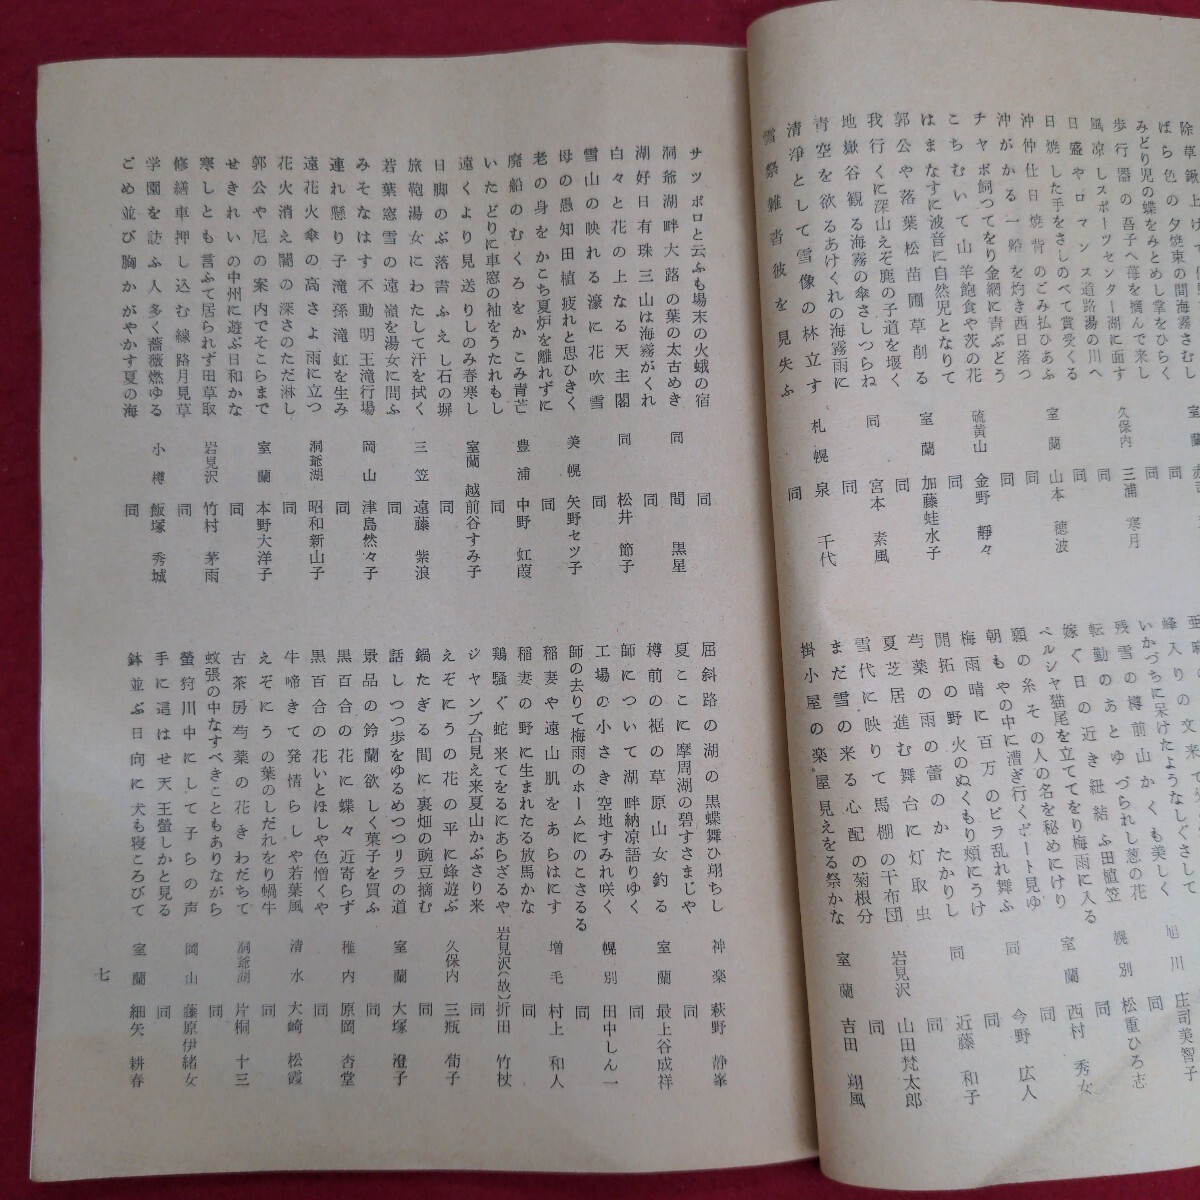 ばら色の夕焼束の間海霧さむし
みどり児の蝶をみとめし掌をひらく
歩行器の吾子へ苺を摘んで来し 久保内 三浦 寒月
風凉しスポーツセンター湖に面す 同
日盛やロマンス道路湯の川へ 同
日焼した手をさしのべて賞受くる 室蘭 山本 穂波
沖仲仕日焼背のごみ払ひあふ 同
沖がかる一船を灼き西日落つ 同
チャボ飼つてをり金網に青ぶどう 硫黄山 金野 靜々
こちむいて山羊飽食や茨の花 同
はまなすに波音に自然児となりて 室蘭 加藤蛙水子
郭公や落葉松苗圃草削る 同
我行くに深山えぞ鹿の子道を堰く 同 宮本 素風
地嶽谷観る海霧の傘さしつらね 同
青空を欲るあけくれの海霧雨に 札幌 泉 千代
清浄として雪像の林立す 同
雪祭雑沓彼を見失ふ
峰入りの文来て
いかづちに呆けたようなしぐさして 旭川 庄司美智子
残雪の樽前山かくも美しく 同
転勤のあとゆづられし葱の花 幌別 松重ひろ志
嫁ぐ日の近き紐結ふ田植笠 同
ペルシャ猫尾を立ててをり梅雨に入る 室蘭 西村 秀女
願の糸その人の名を秘めにけり 同
朝もやの中に漕ぎ行くボート見ゆ 同 今野 広人
梅雨晴に百万のビラ乱れ舞ふ 同
開拓の野火のぬくもり頬にうけ 同 近藤 和子
芍薬の雨の蕾のかたかりし 同
夏芝居進む舞台に灯取虫 岩見沢 山田梵太郎
雪代に映りて馬棚の干布団 同
まだ雪の来る心配の菊根分 室蘭 吉田 翔風
掛小屋の楽屋見えをる祭かな
サツポロと云ふも場末の火蛾の宿 同
洞爺湖畔大蕗の葉の太古めき 同 間 黒星
湖好日有珠三山は海霧がくれ 同
白々と花の上なる天主閣 同 松井 節子
雪山の映れる濠に花吹雪 同
母の愚知田植疲れと思ひきく 美幌 矢野セツ子
老の身をかこち夏炉を離れずに 同
廃船のむくろをかこみ青芒 豊浦 中野 虹葭
いたどりに車窓の袖をうたれもし 同
遠くより見送りしのみ春寒し 室蘭 越前谷すみ子
日脚のぶ落書ふえし石の塀 同
旅鞄湯女にわたして汗を拭く 三笠 遠藤 紫浪
若葉窓雪の遠嶺を湯女に問ふ 同
みそなはす不動明王滝行場 岡山 津島然々子
連れ懸り子滝孫滝虹を生み 同
遠花火傘の高さよ雨に立つ 洞爺湖 昭和新山子
花火消え闇の深さのただ淋し 同
郭公や尼の案内でそこらまで 室蘭 本野大洋子
せきれいの中州に遊ぶ日和かな 同
寒しとも言ふて居られず田草取 岩見沢 竹村 茅雨
修繕車押し込む線路月見草 同
学園を訪ふ人多く薔薇燃ゆる 小樽 飯塚 秀城
ごめ並び胸かがやかす夏の海 同
屈斜路の湖の黒蝶舞ひ翔ちし 神楽 萩野 静峯
夏ここに摩周湖の碧すさまじや 同
樽前の裾の草原山女釣る 室蘭 最上谷成祥
師について湖畔納凉語りゆく 同
工場の小さき空地すみれ咲く 幌別 田中しん一
師の去りて梅雨のホームにのこさるる 同
稲妻や遠山肌をあらはにす 増毛 村上 和人
稲妻の野に生まれたる放馬かな 同
鶏騒ぐ蛇来てをるにあらざるや 岩見沢(故) 折田 竹杖
ジャンプ台見え来夏山かぶさり来 同
えぞにうの花の平に蜂遊ぶ 久保内 三瓶 荀子
鍋たぎる間に裏畑の豌豆摘む 同
話しつつ歩をゆるめつつリラの道 室蘭 大塚 澄子
景品の鈴蘭欲しく菓子を買ふ 同
黒百合の花に蝶々近寄らず 稚内 原岡 杏堂
黒百合の花いとほしや色憎くや 同
牛啼きて発情らしや若葉風 清水 大崎 松霞
えぞにうの葉のしだれをり蝸牛 同
古茶房芍薬の花きわだちて 洞爺湖 片桐 十三
蚊張の中なすべきこともありながら 同
螢狩川中にして子らの声 岡山 藤原伊緒女
手に這はせ天王螢しかと見る 同
鉢並ぶ日向に犬も寝ころびて 室蘭 細矢 耕春
七